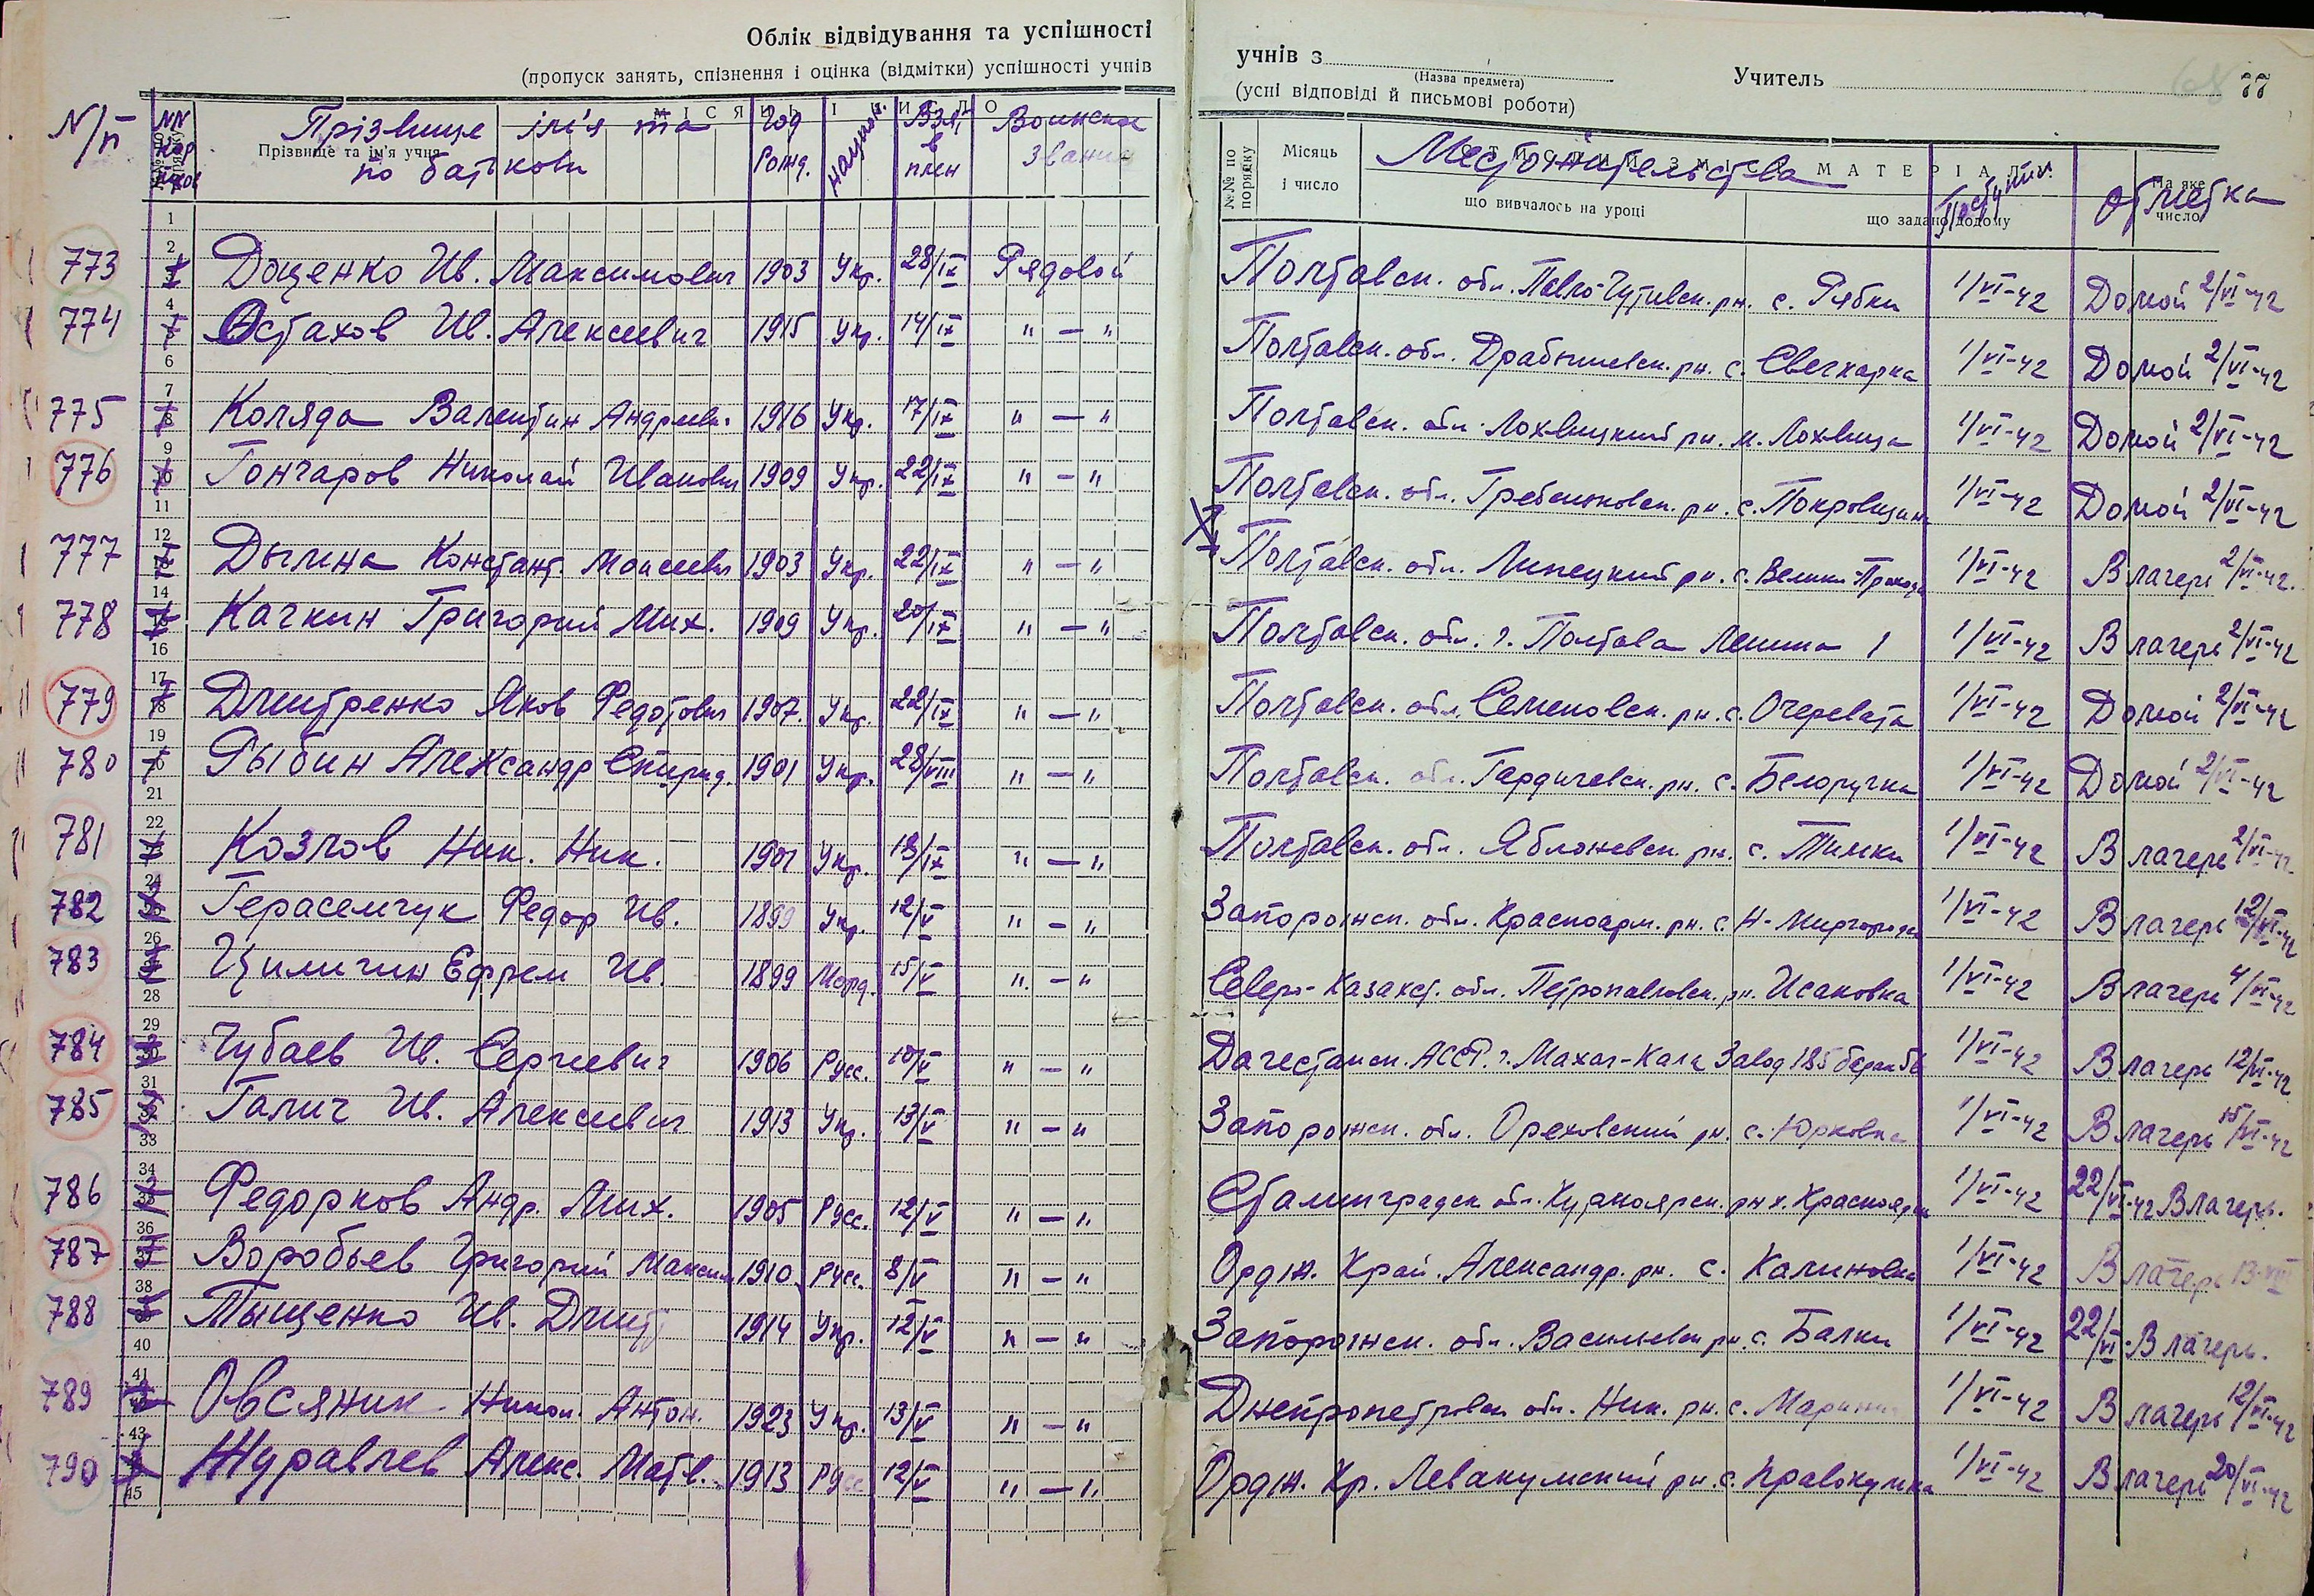 Облік відвідування та успішності
(пропуск занять, спізнення і оцінка (відмітки) успішності учнів
учнів з
(Назва предмета)
Учитель
77
(усні відповіді й письмові роботи)
N/п Прізвище ім'я та по батькови Год рожд. национ. Взят в плен Воинское звание Местожительства Поступил. Отметка
Прізвище та ім'я учня
МІСЯЦЬ І ЧИСЛО
№№ по порядку Місяць і число МАТЕРІАЛ
що вивчалось на уроці що задано додому На яке число
773 Доценко Ив. Максимович 1903 Укр. 28/IX Рядовой Полтавск. обл. Павло-Чутивск. рн. с. Рябки 1/VI-42 Домой 2/VI-42
774 Остахов Ив. Алексеевич 1915 Укр. 14/IX " — " Полтавск. обл. рн. с. 1/VI-42 Домой 2/VI-42
775 Коляда Валентин Андреевич 1916 Укр. 17/IX " — " Полтавск. обл. Лохвицкий рн. м. Лохвица 1/VI-42 Домой 2/VI-42
776 Гончаров Николай Иванович 1909 Укр. 22/IX " — " Полтавск. обл. Гребенковск. рн. с. Покровщина 1/VI-42 Домой 2/VI-42
777 Дымена Констант. Моисеевич 1903 Укр. 22/IX " — " Полтавск. обл. Липецкий рн. с. Велики-Проходы 1/VI-42 В лагерь 2/VI-42.
778 Качкин Григорий Мих. 1909 Укр. 20/IX " — " Полтавск. обл. г. Полтава Ленина 1 1/VI-42 В лагерь 2/VI-42
779 Дмитренко Яков Федотович 1907. Укр. 22/IX " — " Полтавск. обл. Семеновск. рн. с. Очеревата 1/VI-42 Домой 2/VI-42
780 Рыбин Александр Спирид. 1901 Укр. 28/VIII " — " Полтавск. обл. рн. с. Белоручка 1/VI-42 Домой 2/VI-42
781 Козлов Ник. Ник. 1901 Укр. 18/IX " — " Полтавск. обл. Яблоневск. рн. с. Тимки 1/VI-42 В лагерь 2/VI-42
782 Герасемчук Федор Ив. 1899 Укр. 12/V " — " Запорожск. обл. Красноарм. рн. с. Н- 1/VI-42 В лагерь 12/VI-42
783 Циликин Ефрем Ив. 1899 Морд. 15/V " — " Северо-Казахст. обл. Петропавловск. рн. Исаковка 1/VI-42 В лагерь 4/VI-42
784 Чубаев Ив. Сергеевич 1906 Русс. 10/V " — " Дагестанск. АССР. г. Махач-Кала Завод 185 1/VI-42 В лагерь 12/VI-42
785 Галич Ив. Алексеевич 1913 Укр. 13/V " — " Запорожск. обл. Ореховский рн. с. Юрковка 1/VI-42 В лагерь 15/VI-42
786 Федорков Андр. Мих. 1905 Русс. 12/V " — " Сталинградск. обл. рн х. 1/VI-42 22/VI-42 В лагерь.
787 Воробьев Григорий Максим 1910 Русс. 8/V " — " Ордж. Край. Александр. рн. с. Калиновка 1/VI-42 В лагерь 13-VII
788 Тыщенко Ив. Дмитр 1914 Укр. 12/V " — " Запорожск. обл. Васильевск рн. с. Балки 1/VI-42 22/VI-В лагерь.
789 Овсяник Никол. Антон. 1923 Укр. 13/V " — " Днепропетровск обл. Ник. рн. с. 1/VI-42 В лагерь 12/VI-42
790 Журавлев Алекс. Матв. 1913 Русс 12/V " — " Ордж. Кр. Левакумский рн. с. Правокумка 1/VI-42 В лагерь 20/VI-42